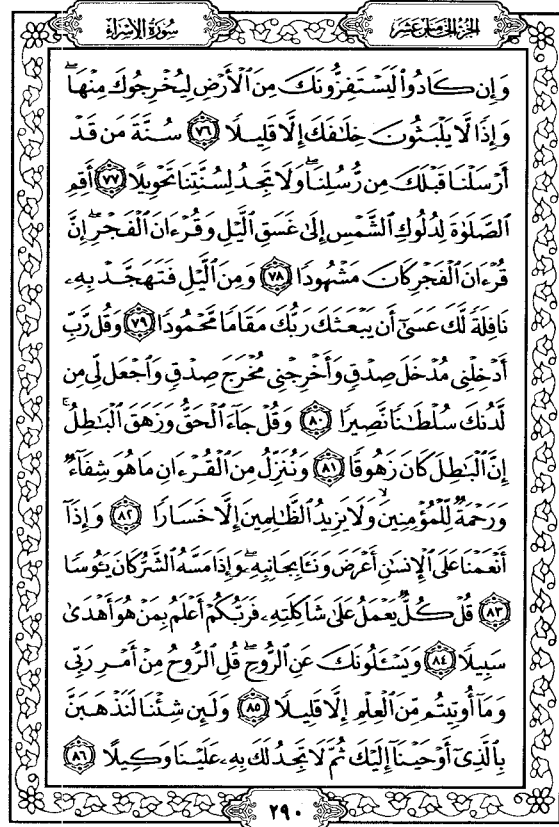 سُورَةُ الإِسْرَاءِ
الجُزْءُ الخَامِسُ عَشَرَ
وَإِن كَادُوا۟ لَيَسْتَفِزُّونَكَ مِنَ ٱلْأَرْضِ لِيُخْرِجُوكَ مِنْهَا ۖ
وَإِذًا لَّا يَلْبَثُونَ خِلَـٰفَكَ إِلَّا قَلِيلًا ﴿٧٦﴾ سُنَّةَ مَن قَدْ
أَرْسَلْنَا قَبْلَكَ مِن رُّسُلِنَا ۖ وَلَا تَجِدُ لِسُنَّتِنَا تَحْوِيلًا ﴿٧٧﴾ أَقِمِ
ٱلصَّلَوٰةَ لِدُلُوكِ ٱلشَّمْسِ إِلَىٰ غَسَقِ ٱلَّيْلِ وَقُرْءَانَ ٱلْفَجْرِ ۖ إِنَّ
قُرْءَانَ ٱلْفَجْرِ كَانَ مَشْهُودًا ﴿٧٨﴾ وَمِنَ ٱلَّيْلِ فَتَهَجَّدْ بِهِۦ
نَافِلَةً لَّكَ عَسَىٰٓ أَن يَبْعَثَكَ رَبُّكَ مَقَامًا مَّحْمُودًا ﴿٧٩﴾ وَقُل رَّبِّ
أَدْخِلْنِى مُدْخَلَ صِدْقٍ وَأَخْرِجْنِى مُخْرَجَ صِدْقٍ وَٱجْعَل لِّى مِن
لَّدُنكَ سُلْطَـٰنًا نَّصِيرًا ﴿٨٠﴾ وَقُلْ جَآءَ ٱلْحَقُّ وَزَهَقَ ٱلْبَـٰطِلُ ۚ
إِنَّ ٱلْبَـٰطِلَ كَانَ زَهُوقًا ﴿٨١﴾ وَنُنَزِّلُ مِنَ ٱلْقُرْءَانِ مَا هُوَ شِفَآءٌ
وَرَحْمَةٌ لِّلْمُؤْمِنِينَ ۙ وَلَا يَزِيدُ ٱلظَّـٰلِمِينَ إِلَّا خَسَارًا ﴿٨٢﴾ وَإِذَآ
أَنْعَمْنَا عَلَى ٱلْإِنسَـٰنِ أَعْرَضَ وَنَـَٔا بِجَانِبِهِۦ ۖ وَإِذَا مَسَّهُ ٱلشَّرُّ كَانَ يَـُٔوسًا
﴿٨٣﴾ قُلْ كُلٌّ يَعْمَلُ عَلَىٰ شَاكِلَتِهِۦ فَرَبُّكُمْ أَعْلَمُ بِمَنْ هُوَ أَهْدَىٰ
سَبِيلًا ﴿٨٤﴾ وَيَسْـَٔلُونَكَ عَنِ ٱلرُّوحِ ۖ قُلِ ٱلرُّوحُ مِنْ أَمْرِ رَبِّى
وَمَآ أُوتِيتُم مِّنَ ٱلْعِلْمِ إِلَّا قَلِيلًا ﴿٨٥﴾ وَلَئِن شِئْنَا لَنَذْهَبَنَّ
بِٱلَّذِىٓ أَوْحَيْنَآ إِلَيْكَ ثُمَّ لَا تَجِدُ لَكَ بِهِۦ عَلَيْنَا وَكِيلًا ﴿٨٦﴾
٢٩٠